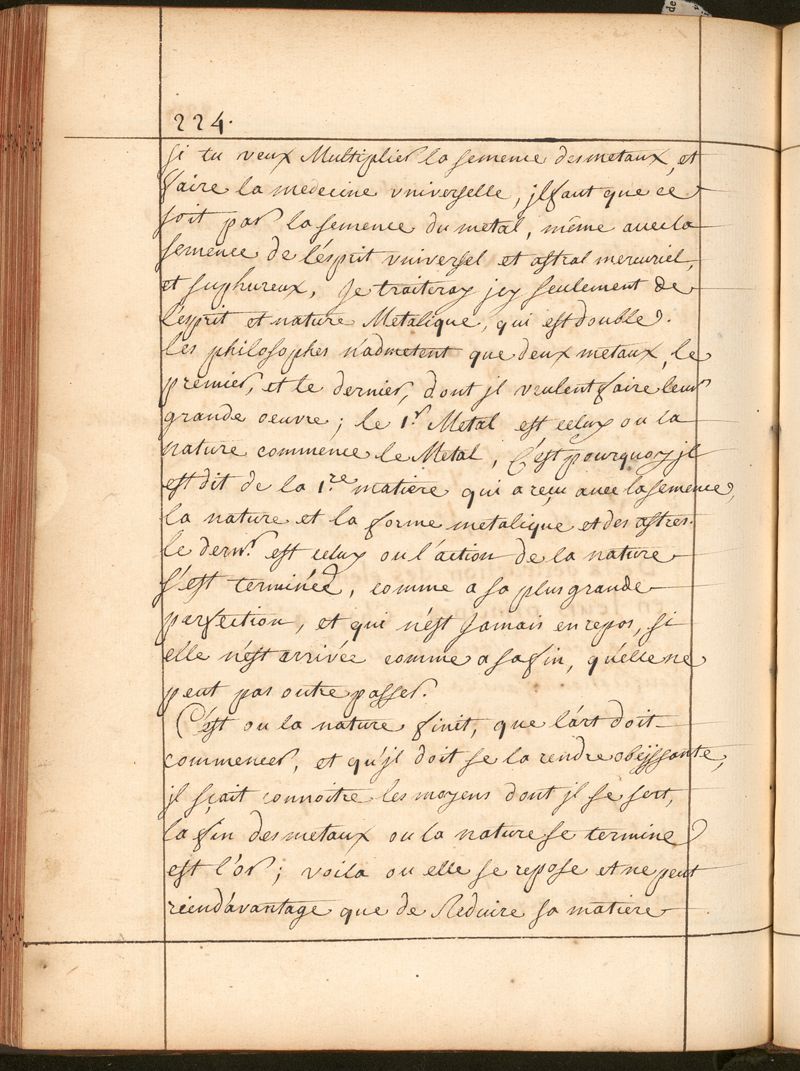 224.
si tu veux Multiplier la semence des metaux, et
faire la medecine vniverselle, jl faut que ce
soit par la semence du metal, même avec la
semence de l'ésprit vniversel et astral mercuriel,
et suphureux, Je traiteray jcy seulement de
l'ésprit et nature Metalique, qui est double.
les philosophes n'admetent que deux metaux, le
premier, et le dernier, dont jl veulent faire leur
grande oeuvre; le 1.r Metal est celuy ou la
nature commence le Metal, C'est pourquoy jl
est dit de la 1.re matiere qui a reçu avec la semence,
la nature et la forme metalique et des astres.
le dern.r est celuy ou l'action de la nature
s'est terminée, comme a sa plus grande
parfection, et qui n'ést Jamais en repos, si
elle n'ést arrivée comme a sa fin, qu'elle ne
peut pas outre passer.
C'est ou la nature finit, que l'árt doit
commencer, et qu'jl doit se la rendre obeyssante,
jl sçait connoitre les moyens dont jl se sert,
la fin des metaux ou la nature se termine
est l'or; voila ou elle se repose et ne peut
rien d'avantage que de Reduire sa matiere